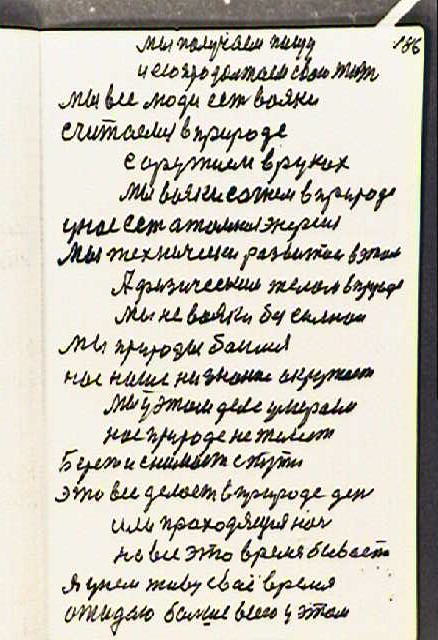 186
мы получаем пищу
и ею продолжаем свою жизн
Мы все люди ест вояки
считаемся в природе
с оружием в руках
Мы вояки согнем в природе
у нас ест атомная энергия
Мы технически развитые в этом
А физическим телом в природе
Мы не вояки бессилной
Мы природы боимся
нас наше незнание окружает
Мы у этом деле умераем
нас природе не жилеет
Берет и снимает с пути
это все делает в природе ден
или проходящая ноч
на все это время бывает
Я у нем живу свае время
ожидаю болше всего у этом